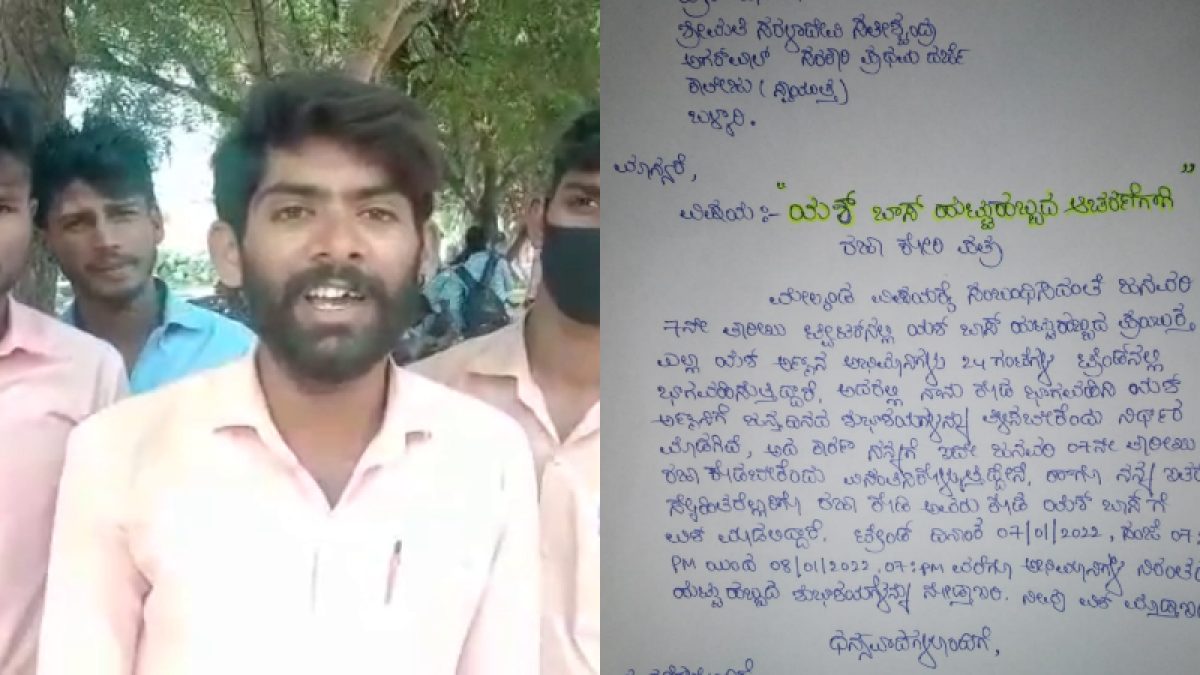 ಶ್ರೀಮತಿ ಸರಳಾದೇವಿ ಸತೀಶ್ಚಂದ್ರ
ಅಗರ್ವಾಲ್ ಸರಕಾರಿ ಪ್ರಥಮ ದರ್ಜೆ
ಕಾಲೇಜು (ಸ್ವಾಯತ್ತ)
ಬಳ್ಳಾರಿ.
ಮಾನ್ಯರೇ,
ವಿಷಯ :- "ಯಶ್ ಬಾಸ್ ಹುಟ್ಟುಹಬ್ಬದ ಆಚರಣೆಗಾಗಿ"
ರಜಾ ಕೋರಿ ಪತ್ರ
ಮೇಲ್ಕಂಡ ವಿಷಯಕ್ಕೆ ಸಂಬಂಧಿಸಿದಂತೆ ಜನವರಿ
7ನೇ ತಾರೀಖು ಟ್ವಿಟರ್‌ನಲ್ಲಿ ಯಶ್ ಬಾಸ್ ಹುಟ್ಟುಹಬ್ಬದ
ಎಲ್ಲಾ ಯಶ್ ಅಣ್ಣನ ಅಭಿಮಾನಿಗಳು 24 ಗಂಟೆಗಳ ಟ್ರೆಂಡ್‌ನಲ್ಲಿ
ಭಾಗವಹಿಸುತ್ತಿದ್ದಾರೆ, ಅದರಲ್ಲಿ ನಾನು ಕೂಡ ಭಾಗವಹಿಸಿ ಯಶ್
ಅಣ್ಣನಿಗೆ ಹುಟ್ಟುಹಬ್ಬದ ಶುಭಾಶಯಗಳನ್ನು ನಿರ್ಧಾರ
ಮಾಡಿದ್ದು, ಆದ ಕಾರಣ ನನಗೆ ಇದೇ ಜನವರಿ 07ನೇ ತಾರೀಖು
ರಜಾ ಕೊಡಬೇಕೆಂದು ವಿನಂತಿಸಿಕೊಳ್ಳುತ್ತಿದ್ದೇನೆ, ಹಾಗೂ ನನ್ನ ಇತರ
ಸ್ನೇಹಿತರೆಲ್ಲರಿಗೂ ರಜಾ ಕೊಡಿ ಅವರು ಕೂಡ ಯಶ್ ಬಾಸ್ ಗೆ
ವಿಶ್ ಮಾಡಲಿದ್ದಾರೆ. ಟ್ರೆಂಡ್ ದಿನಾಂಕ 07/01/2022, ಸಂಜೆ 07:
PM ಯಿಂದ 08/01/2022, 07:PM ವರೆಗೂ ಅಭಿಮಾನಿಗಳು ನಿರಂತರ
ಹುಟ್ಟುಹಬ್ಬದ ಶುಭಾಶಯಗಳನ್ನು ನೀವೂ ವಿಶ್
ಧನ್ಯವಾದಗಳೊಂದಿಗೆ,